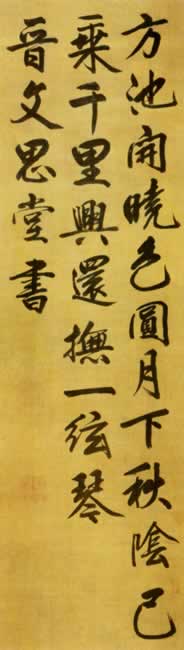 方池開曉色圓月下秋陰已
乘千里興還撫一弦琴
晉文思堂書